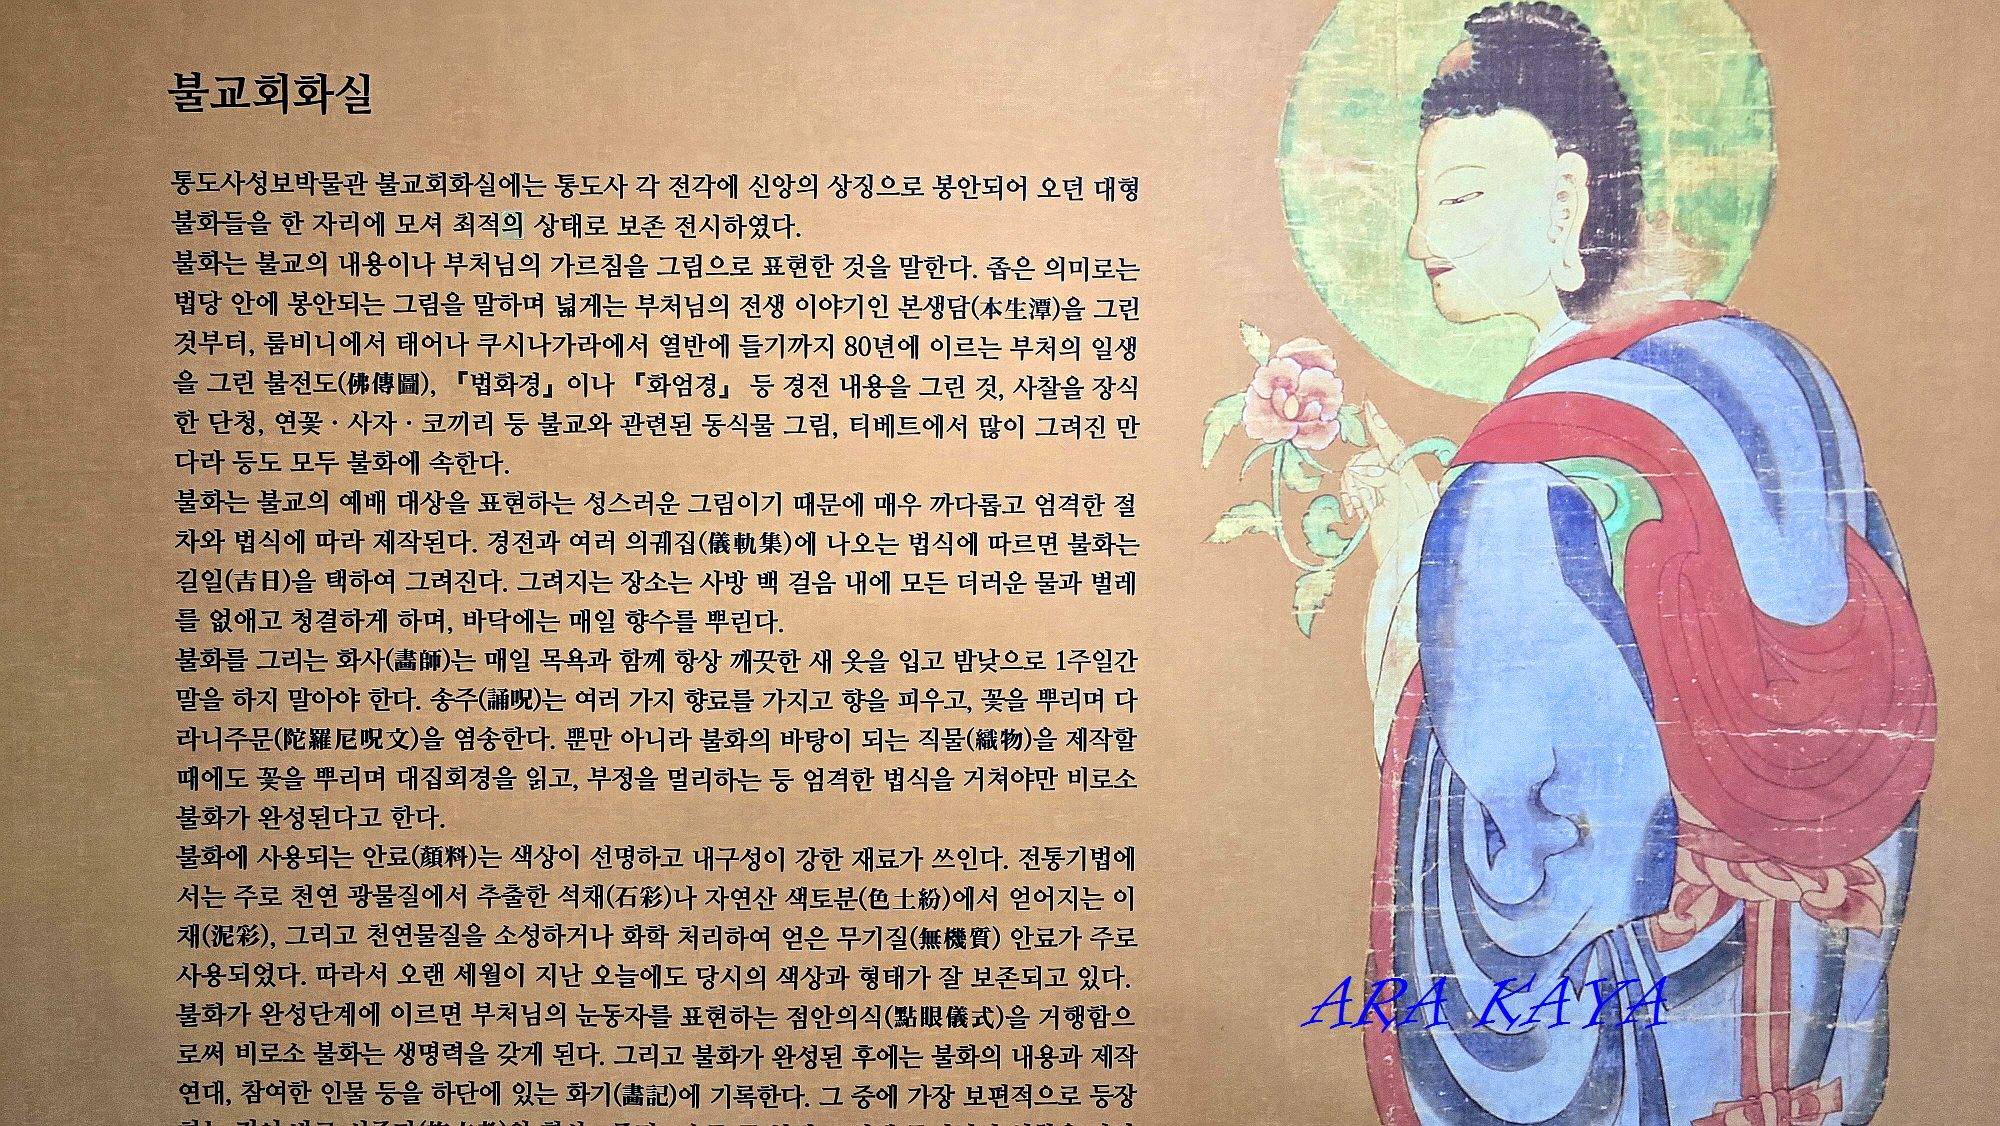 불교회화실
통도사성보박물관 불교회화실에는 통도사 각 전각에 신앙의 상징으로 봉안되어 오던 대형
불화들을 한 자리에 모셔 최적의 상태로 보존 전시하였다.
불화는 불교의 내용이나 부처님의 가르침을 그림으로 표현한 것을 말한다. 좁은 의미로는
법당 안에 봉안되는 그림을 말하며 넓게는 부처님의 전생 이야기인 본생담(本生潭)을 그린
것부터, 룸비니에서 태어나 쿠시나가라에서 열반에 들기까지 80년에 이르는 부처의 일생
을 그린 불전도(佛傳圖), 『법화경』이나 『화엄경』 등 경전 내용을 그린 것, 사찰을 장식
한 단청, 연꽃 · 사자 · 코끼리 등 불교와 관련된 동식물 그림, 티베트에서 많이 그려진 만
다라 등도 모두 불화에 속한다.
불화는 불교의 예배 대상을 표현하는 성스러운 그림이기 때문에 매우 까다롭고 엄격한 절
차와 법식에 따라 제작된다. 경전과 여러 의궤집(儀軌集)에 나오는 법식에 따르면 불화는
길일(吉日)을 택하여 그려진다. 그려지는 장소는 사방 백 걸음 내에 모든 더러운 물과 벌레
를 없애고 청결하게 하며, 바닥에는 매일 향수를 뿌린다.
불화를 그리는 화사(畵師)는 매일 목욕과 함께 항상 깨끗한 새 옷을 입고 밤낮으로 1주일간
말을 하지 말아야 한다. 송주(誦呪)는 여러 가지 향료를 가지고 향을 피우고, 꽃을 뿌리며 다
라니주문(陀羅尼呪文)을 염송한다. 뿐만 아니라 불화의 바탕이 되는 직물(織物)을 제작할
때에도 꽃을 뿌리며 대집회경을 읽고, 부정을 멀리하는 등 엄격한 법식을 거쳐야만 비로소
불화가 완성된다고 한다.
불화에 사용되는 안료(顔料)는 색상이 선명하고 내구성이 강한 재료가 쓰인다. 전통기법에
서는 주로 천연 광물질에서 추출한 석채(石彩)나 자연산 색토분(色土紛)에서 얻어지는 이
채(泥彩), 그리고 천연물질을 소성하거나 화학 처리하여 얻은 무기질(無機質) 안료가 주로
사용되었다. 따라서 오랜 세월이 지난 오늘에도 당시의 색상과 형태가 잘 보존되고 있다.
불화가 완성단계에 이르면 부처님의 눈동자를 표현하는 점안의식(點眼儀式)을 거행함으
로써 비로소 불화는 생명력을 갖게 된다. 그리고 불화가 완성된 후에는 불화의 내용과 제작
연대, 참여한 인물 등을 하단에 있는 화기(畵記)에 기록한다. 그 중에 가장 보편적으로 등장
ARA KAYA